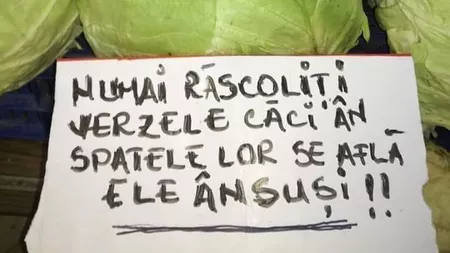 NUMAI RĂSCOLIȚI
VERZELE CĂCI ÂN
SPATELE LOR SE AFLĂ
ELE ÂNSUȘI!!